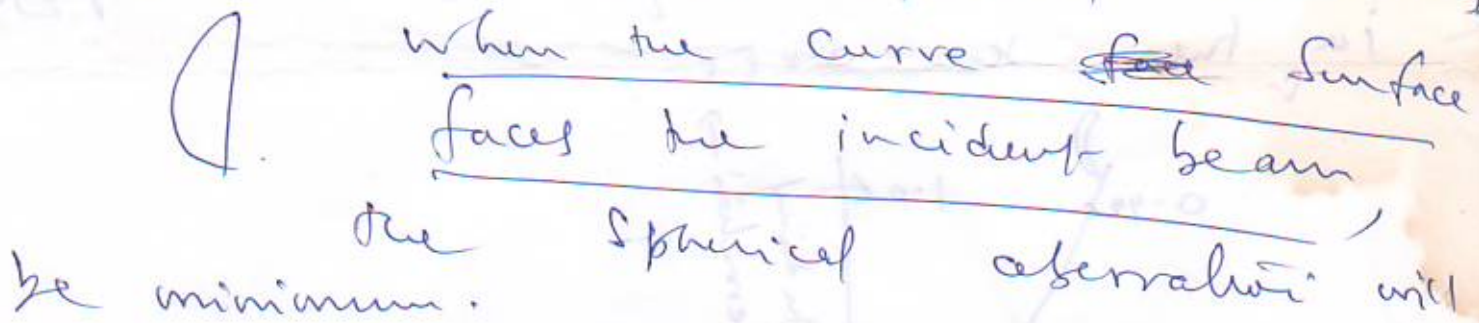 when the curve surface
faces the incident beam,
the spherical aberration will
be minimum.